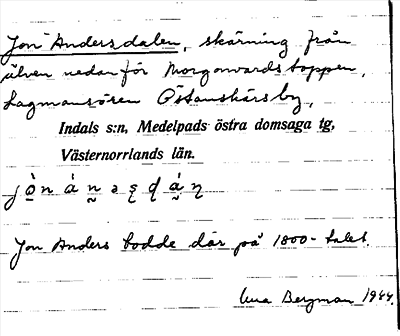 Jon Andersdalen, skärning från
älven nedanför Morgonvardstoppen,
Lagmansören Östanskärsby,
Indals s:n, Medelpads östra domsaga tg,
Västernorrlands län.
Jon Anders bodde där på 1800-talet.
Bergman 1944.